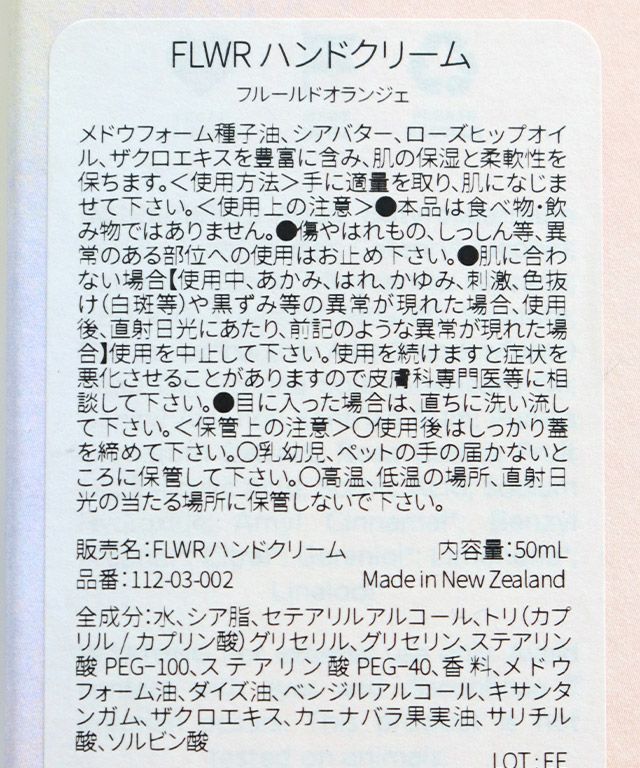 FLWR ハンドクリーム
フルールドオランジェ
メドウフォーム種子油、シアバター、ローズヒップオイ
ル、ザクロエキスを豊富に含み、肌の保湿と柔軟性を
保ちます。＜使用方法＞手に適量を取り、肌になじま
せて下さい。＜使用上の注意＞●本品は食べ物・飲
み物ではありません。●傷やはれもの、しっしん等、異
常のある部位への使用はお止め下さい。●肌に合わ
ない場合【使用中、あかみ、はれ、かゆみ、刺激、色抜
け(白斑等)や黒ずみ等の異常が現れた場合、使用
後、直射日光にあたり、前記のような異常が現れた場
合】使用を中止して下さい。使用を続けますと症状を
悪化させることがありますので皮膚科専門医等に相
談して下さい。●目に入った場合は、直ちに洗い流し
て下さい。＜保管上の注意＞○使用後はしっかり蓋
を締めて下さい。○乳幼児、ペットの手の届かないと
ころに保管して下さい。○高温、低温の場所、直射日
光の当たる場所に保管しないで下さい。
販売名：FLWRハンドクリーム 内容量：50mL
品番：112-03-002 Made in New Zealand
全成分：水、シア脂、セテアリルアルコール、トリ（カプ
リル / カプリン酸）グリセリル、グリセリン、ステアリン
酸PEG-100、ステアリン酸PEG-40、香料、メドウ
フォーム油、ダイズ油、ベンジルアルコール、キサンタ
ンガム、ザクロエキス、カニナバラ果実油、サリチル
酸、ソルビン酸
LOT : EE